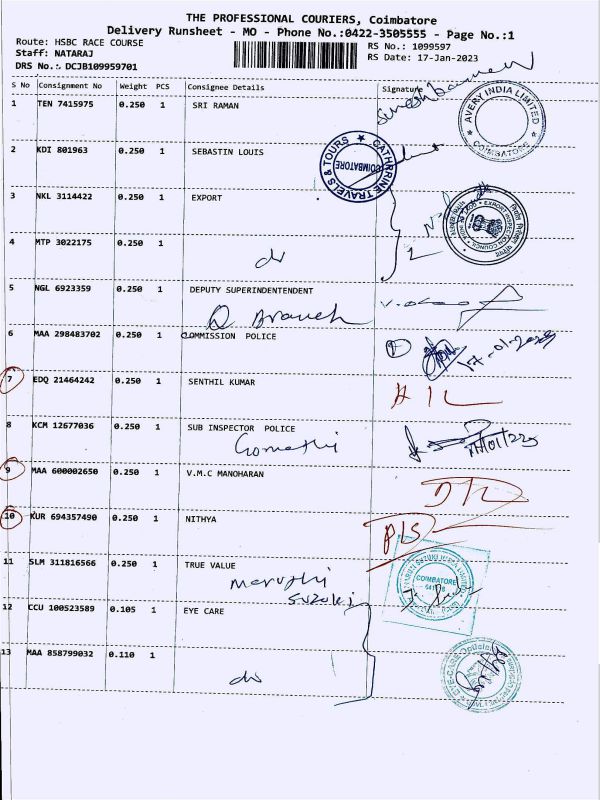 THE PROFESSIONAL COURIERS, Coimbatore
Delivery Runsheet - MO - Phone No.:0422-3505555 - Page No.:1
Route: HSBC RACE COURSE
RS No.: 1099597
Staff: NATARAJ
RS Date: 17-Jan-2023
DRS No.: DCJB109959701
S No Consignment No Weight PCS Consignee Details Signature
1 TEN 7415975 0.250 1 SRI RAMAN
AVERY INDIA LIMITED
COIMBATORE
2 KDI 801963 0.250 1 SEBASTIN LOUIS
CATHRINE TRAVELS & TOURS
COIMBATORE
3 NKL 3114422 0.250 1 EXPORT
EXPORT INSPECTION COUNCIL
4 MTP 3022175 0.250 1
do
5 NGL 6923359 0.250 1 DEPUTY SUPERINDENTENDENT
Q Branch
6 MAA 298483702 0.250 1 COMMISSION POLICE
17-01-2023
7 EDQ 21464242 0.250 1 SENTHIL KUMAR
8 KCM 12677036 0.250 1 SUB INSPECTOR POLICE
Gomathi
9 MAA 600002650 0.250 1 V.M.C MANOHARAN
10 KUR 694357490 0.250 1 NITHYA
11 SLM 311816566 0.250 1 TRUE VALUE
Maruthi
Suzuki
COIMBATORE
12 CCU 100523589 0.105 1 EYE CARE
13 MAA 858799032 0.110 1
do
EYE-CARE Opticals